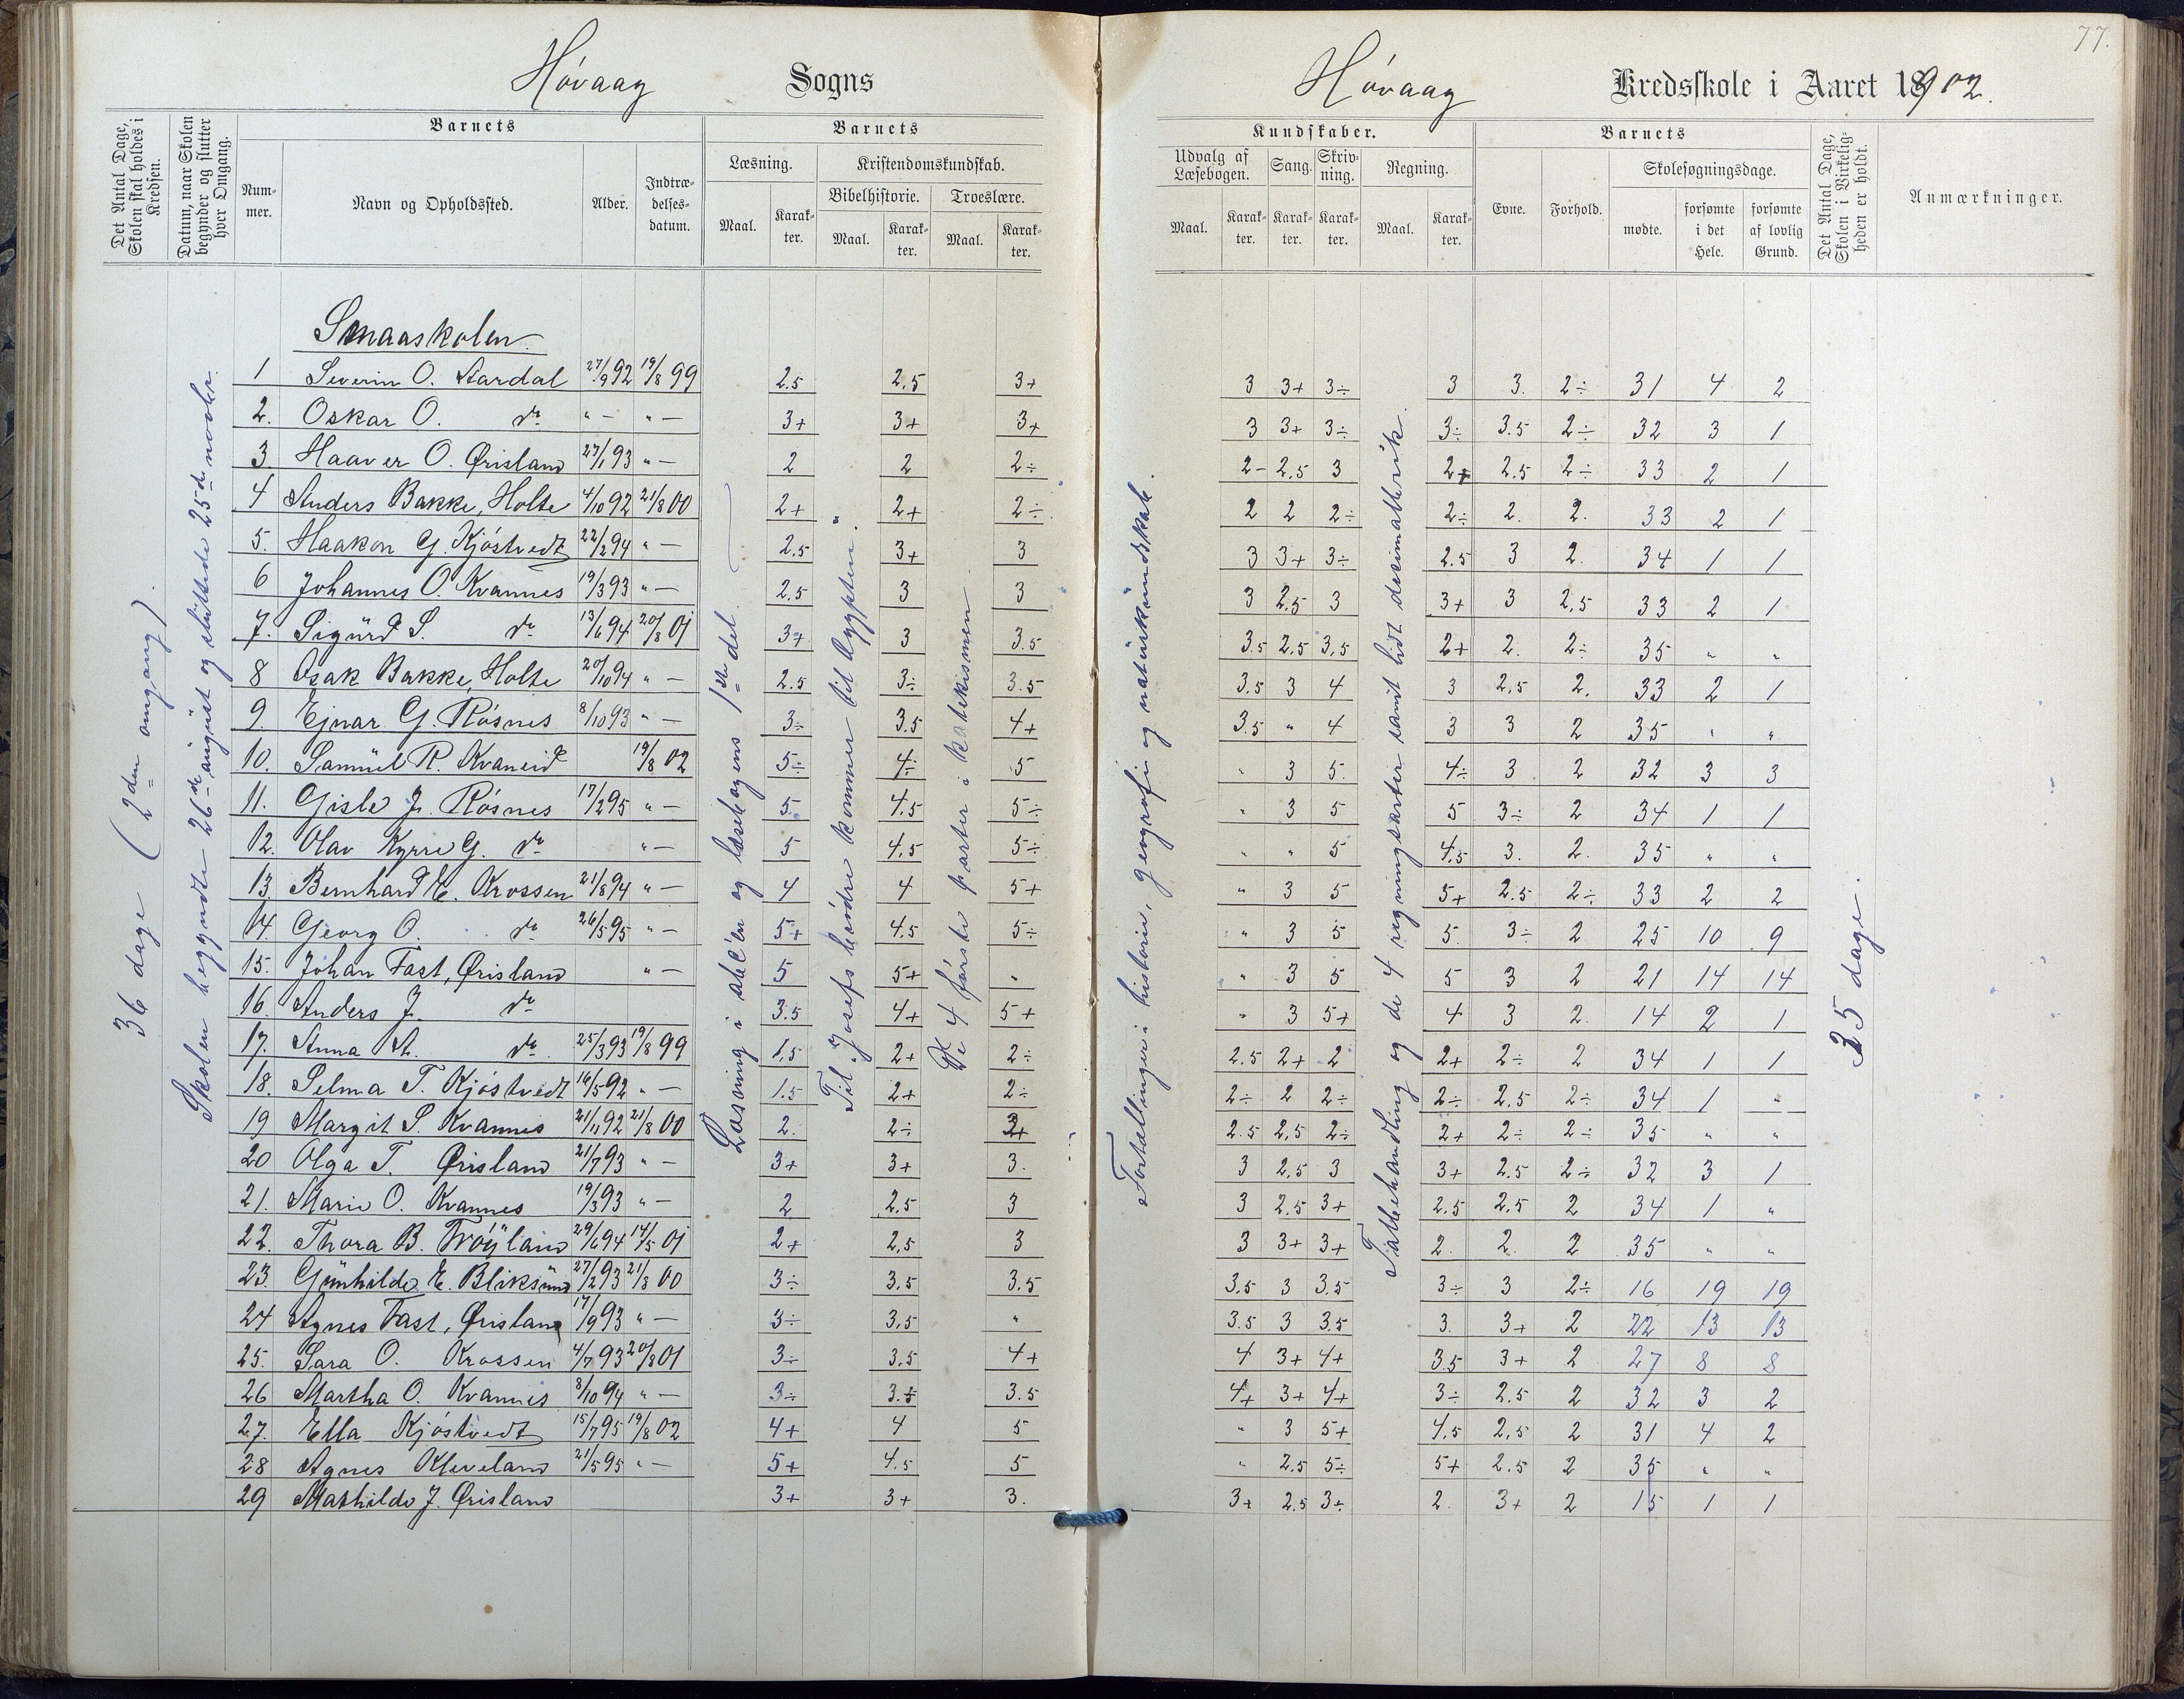 77.
Høvaag Sogns
Høvaag Kredsskole i Aaret 1902.
Det Antal Dage, Skolen skal holdes i Kredsen.
Datum, naar Skolen begynder og slutter hver Omgang.
Barnets
Num-mer.
Navn og Opholdssted.
Alder.
Indtræ-delses-datum.
Barnets
Læsning.
Kristendomskundskab.
Bibelhistorie.
Troeslære.
Maal. Karak-ter. Maal. Karak-ter. Maal. Karak-ter.
Kundskaber.
Udvalg af Læsebogen.
Sang.
Skriv-ning.
Regning.
Maal. Karak-ter. Karak-ter. Karak-ter. Maal. Karak-ter.
Barnets
Evne.
Forhold.
Skolesøgningsdage.
mødte.
forsømte i det Hele.
forsømte af lovlig Grund.
Det Antal Dage, Skolen i Virkelig-heden er holdt.
Anmærkninger.
36 dage (2den omgang).
Skolen begyndte 26de august og sluttede 25de novbr.
Læsning i abc'en og læsebogens 1ste del.
Til Josefs brødre kommer til Ægypten.
De 4 første parter i katekismen
Fortællinger i historie, geografi og naturkundskab.
Talbehandling og de 4 regningsarter samt lidt decimalbrøk.
35 dage.
Smaaskolen
1 Severin O. Aardal 27/9 92 19/8 99 2.5 2.5 3+ 3 3+ 3÷ 3 3. 2÷ 31 4 2
2. Oskar O. do " — " — 3+ 3+ 3+ 3 3+ 3÷ 3÷ 3.5 2÷ 32 3 1
3. Haaver O. Ørisland 27/1 93 " — 2 2 2÷ 2- 2.5 3 2+ 2.5 2÷ 33 2 1
4 Anders Bakke, Holte 4/10 92 21/8 00 2+ 2+ 2÷ 2 2 2÷ 2÷ 2. 2. 33 2 1
5. Haakon G. Kjøstvedt 22/2 94 " — 2.5 3+ 3 3 3+ 3÷ 2.5 3 2. 34 1 1
6 Johannes O. Kvannes 19/3 93 " — 2.5 3 3 3 2.5 3 3+ 3 2.5 33 2 1
7. Sigurd S. do 13/6 94 20/8 01 3+ 3 3.5 3.5 2.5 3.5 2+ 2. 2÷ 35 " "
8 Isak Bakke, Holte 20/10 94 " — 2.5 3÷ 3.5 3.5 3 4 3 2.5 2. 33 2 1
9. Ejnar G. Røsnes 8/10 93 " — 3÷ 3.5 4+ 3.5 " 4 3 3 2 35 " "
10. Samuel R. Kvaneid 19/8 02 5÷ 4÷ 5 " 3 5. 4÷ 3 2 32 3 3
11. Gisle J. Røsnes 17/2 95 " — 5. 4.5 5÷ " 3 5 5 3÷ 2 34 1 1
12. Olav Kyrre G. do " — 5 4.5 5÷ " " 5 4.5 3. 2. 35 " "
13. Bernhard E. Krossen 21/8 94 " — 4 4 5+ " 3 5 5+ 2.5 2÷ 33 2 2
14. Georg O. do 26/5 95 " — 5+ 4.5 5÷ " 3 5 5. 3÷ 2 25 10 9
15. Johan Fast, Ørisland " — 5 5+ " " 3 5 5 3 2 21 14 14
16. Anders J. do 3.5 4+ 5+ " 3 5+ 4 3 2. 14 2 1
17. Anna A. do 25/3 93 19/8 99 1.5 2+ 2÷ 2.5 2+ 2 2+ 2÷ 2 34 1 1
18. Selma T. Kjøstvedt 16/5 92 " — 1.5 2+ 2÷ 2÷ 2 2÷ 2÷ 2.5 2÷ 34 1 "
19 Margit S. Kvannes 21/11 92 21/8 00 2. 2÷ 3+ 2.5 2.5 2÷ 2+ 2÷ 2÷ 35 " "
20 Olga T. Ørisland 21/7 93 " — 3+ 3+ 3. 3 2.5 3 3+ 2.5 2÷ 32 3 1
21. Marie O. Kvannes 19/3 93 " — 2 2.5 3 3 2.5 3+ 2.5 2.5 2 34 1 "
22. Thora B. Trøjland 29/6 94 14/5 01 2+ 2.5 3 3 3+ 3+ 2. 2. 2 35 " "
23. Gunhilde E. Bliksund 27/2 93 21/8 00 3÷ 3.5 3.5 3.5 3 3.5 3÷ 3 2÷ 16 19 19
24 Agnes Fast, Ørisland 17/9 93 " — 3÷ 3.5 " 3.5 3 3.5 3. 3+ 2 22 13 13
25. Sara O. Krossen 4/7 93 20/8 01 3÷ 3.5 4+ 4 3+ 4+ 3.5 3+ 2 27 8 8
26 Martha O. Kvannes 8/10 94 " — 3÷ 3.÷ 3.5 4+ 3+ 4+ 3÷ 2.5 2 32 3 2
27. Ella Kjøstvedt 15/7 95 19/8 02 4+ 4 5 " 3 5+ 4.5 2.5 2 31 4 2
28 Agnes Kleveland 21/5 95 " — 5+ 4.5 5 " 2.5 5÷ 5+ 2.5 2 35 " "
29 Mathilde J. Ørisland 3+ 3+ 3. 3+ 2.5 3÷ 2. 3+ 2 15 1 1